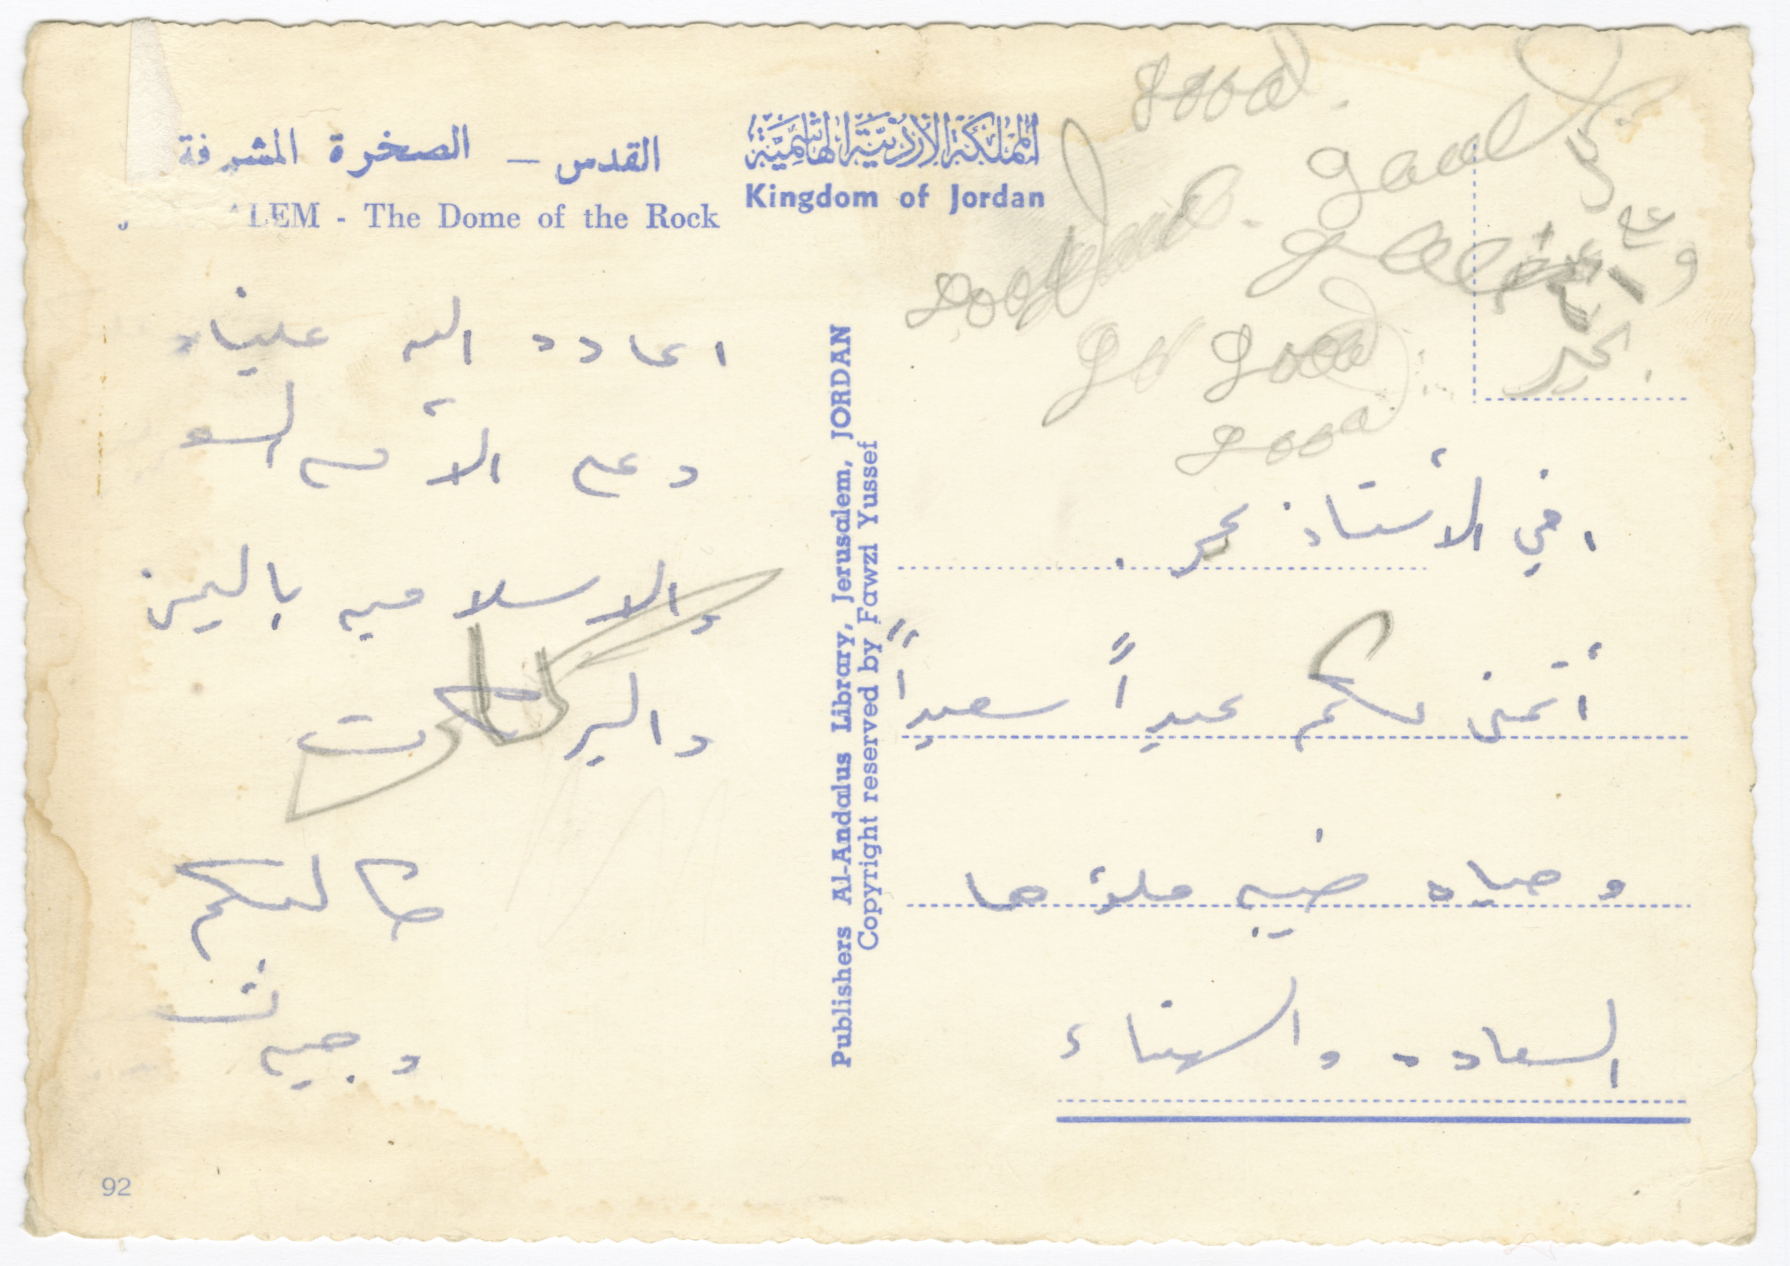 القدس - الصخرة المشرفة
LEM - The Dome of the Rock
المملكة الأردنية الهاشمية
Kingdom of Jordan
good.
good
good.
good
go good
good
Publishers Al-Andalus Library, Jerusalem, JORDAN
Copyright reserved by Fawzi Yussef
اخي الأستاذ
أتمنى لكم عيداً سعيداً
و حياه ملؤها
السعاده والهناء
اعاده الله علينا
وعلى الأمه
والاسلاميه باليمن
والبركات
وجيه
92